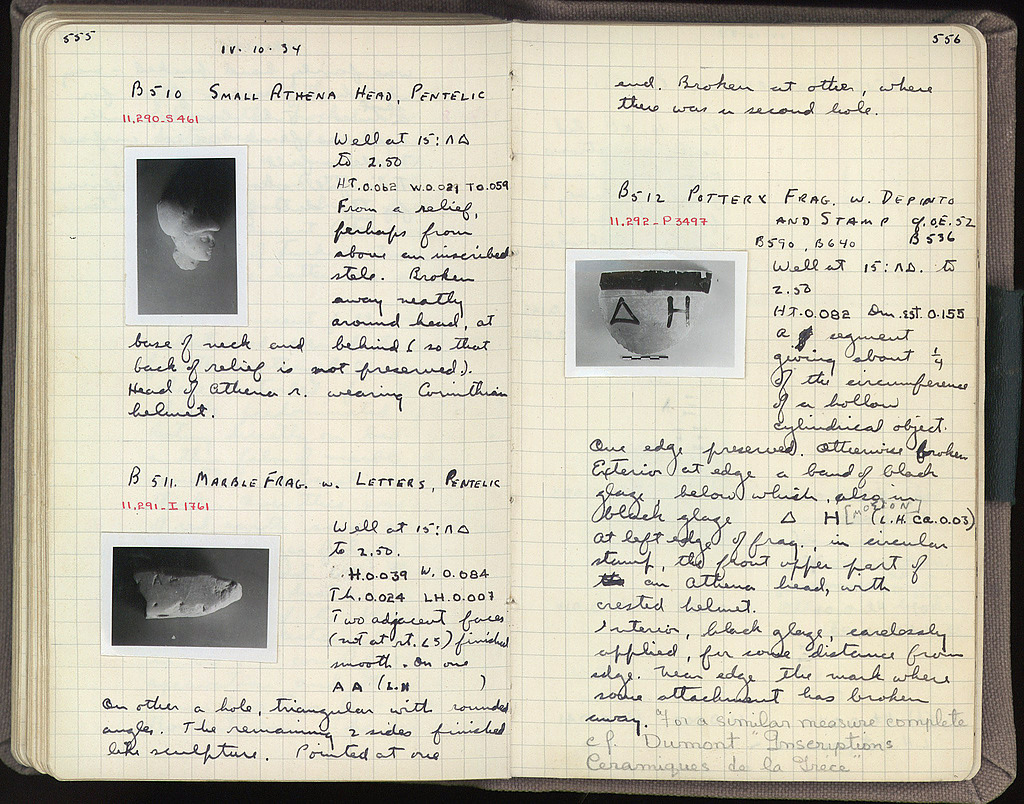 555
IV. 10. 34
B510 SMALL ATHENA HEAD, PENTELIC
11.290-S 461
Well at 15:ΛΔ
to 2.50
HT. 0.062 W. 0.021 T 0.059
From a relief,
perhaps from
above an inscribed
stele. Broken
away neatly
around head, at
base of neck and behind (so that
back of relief is not preserved).
Head of Athena r. wearing Corinthian
helmet.
B 511. MARBLE FRAG. w. LETTERS, PENTELIC
11.291-I 1761
Well at 15:ΛΔ
to 2.50.
H. 0.039 W. 0.084
Th. 0.024 LH. 0.007
Two adjacent faces
(not at rt. ∠S) finished
smooth. On one
A A (L.H )
On other a hole, triangular with rounded
angles. The remaining 2 sides finished
like sculpture. Pointed at one
556
end. Broken at other, where
there was a second hole.
B512 POTTERY FRAG. W. DEPINTO
11.292-P 3497
AND STAMP cf. OE.52
B590, B640 B 536
Well at 15:ΛΔ. to
2.50
HT. 0.082 Dm. est. 0.155
A segment
giving about 1/4
of the circumference
of a hollow
cylindrical object.
One edge preserved. Otherwise broken
Exterior at edge a band of black
glaze, below which, also in
black glaze Δ Η [ΜΟΣΙΟΝ] (L.H. ca. 0.03)
At left edge of frag., in circular
stamp, the front upper part of
an Athena head, with
crested helmet.
Interior, black glaze, carelessly
applied, for some distance from
edge. Near edge the mark where
some attachment has broken
away. For a similar measure complete
cf. Dumont "Inscriptions
Ceramiques de la Grece"
Δ Η